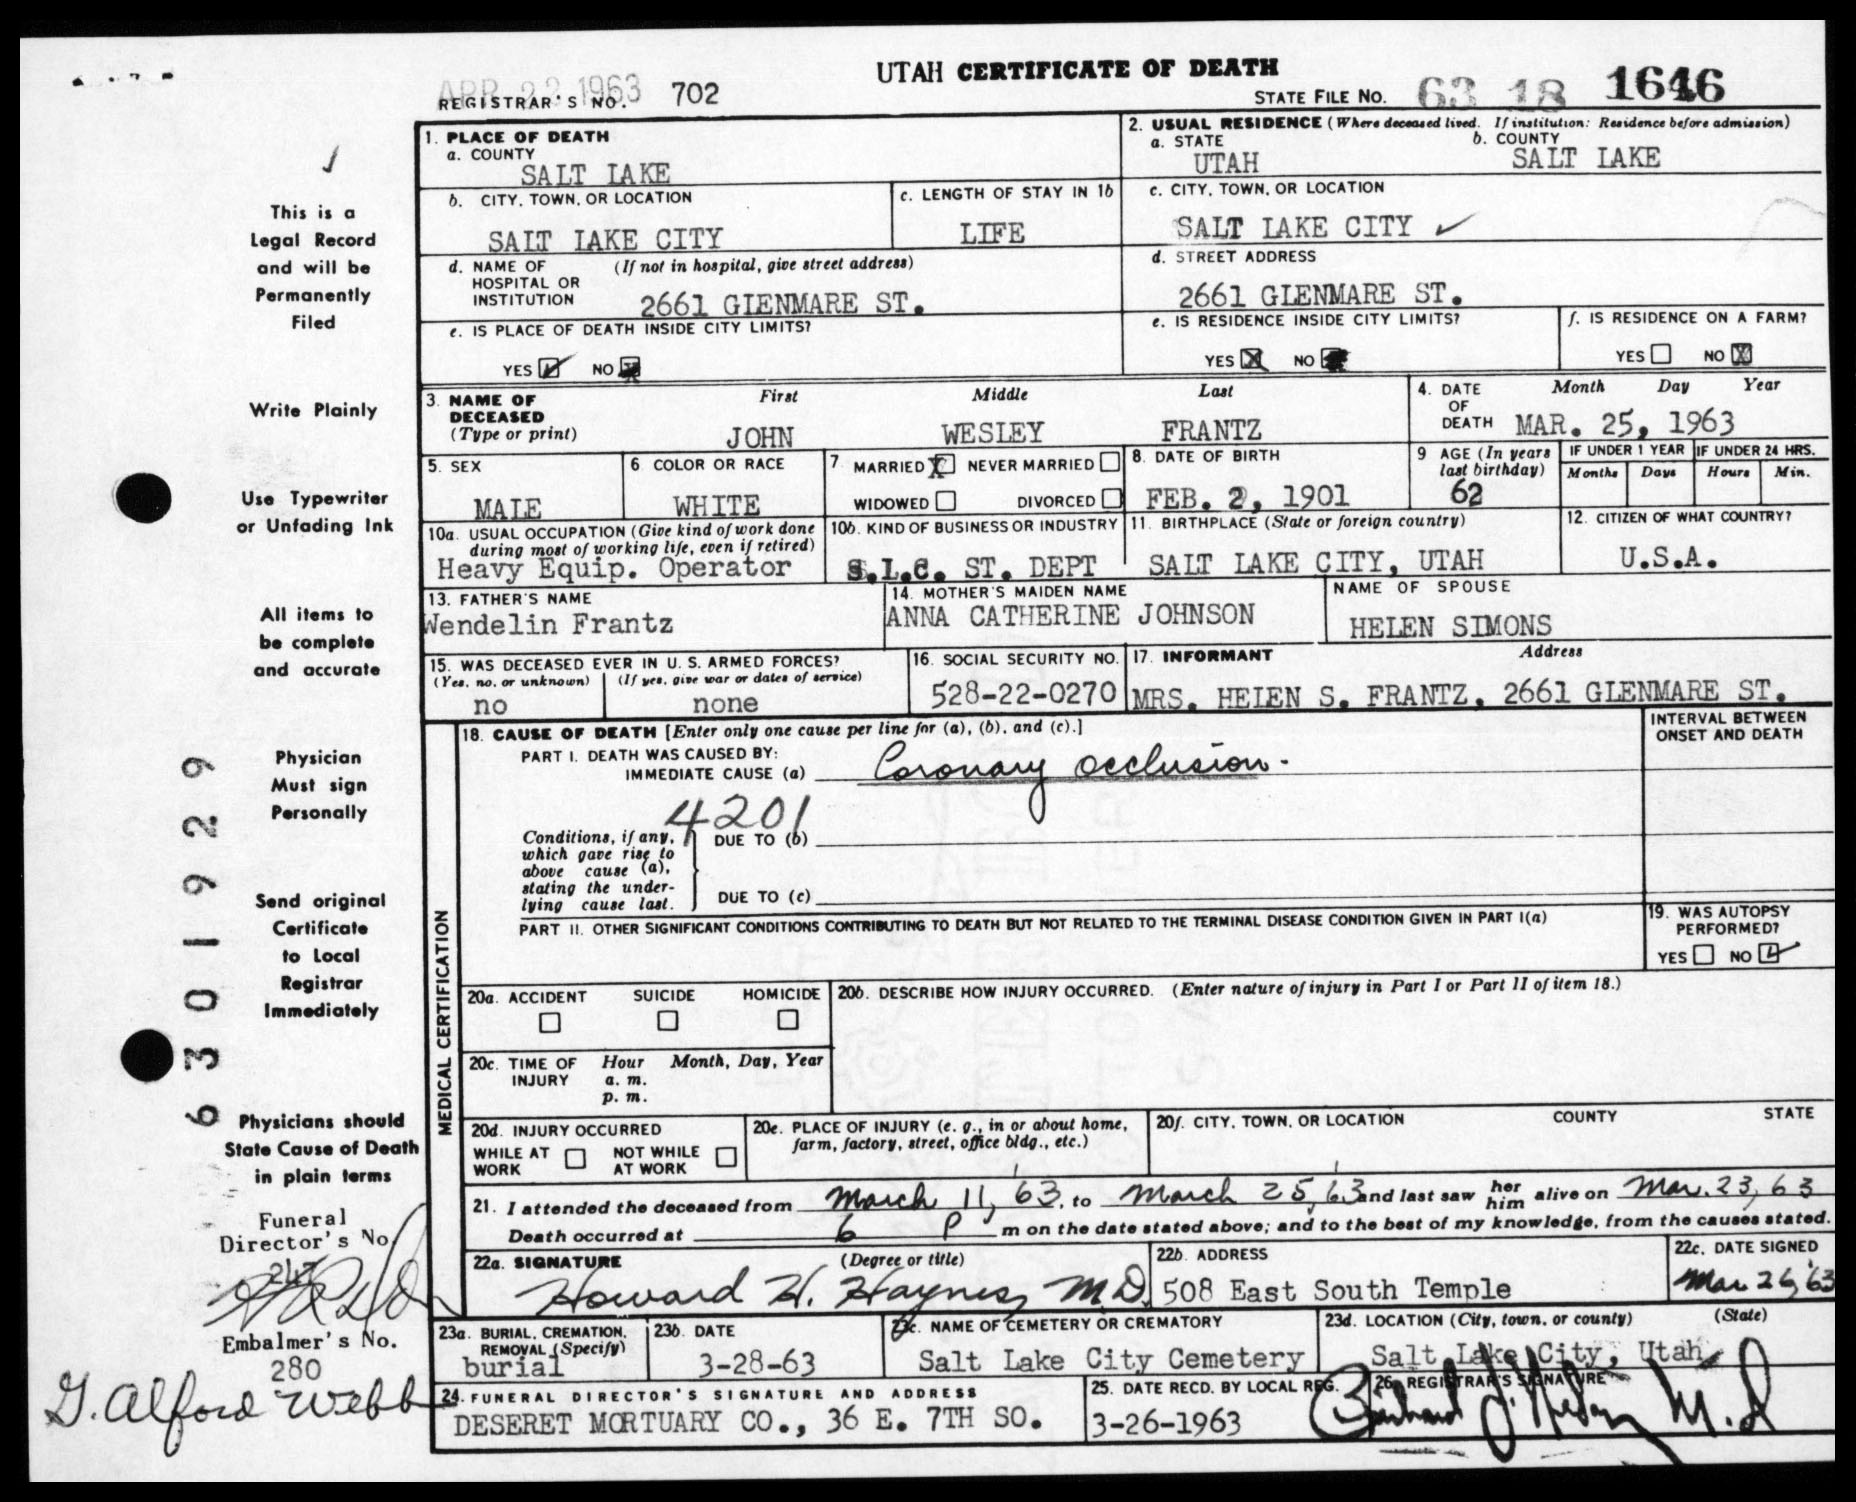 UTAH CERTIFICATE OF DEATH
APR 22 1963
REGISTRAR'S NO. 702
STATE FILE NO. 63 18 1646
1. PLACE OF DEATH
a. COUNTY
SALT LAKE
2. USUAL RESIDENCE (Where deceased lived. If institution: Residence before admission)
a. STATE
UTAH
b. COUNTY
SALT LAKE
b. CITY, TOWN, OR LOCATION
SALT LAKE CITY
c. LENGTH OF STAY IN 1b
LIFE
c. CITY, TOWN, OR LOCATION
SALT LAKE CITY
d. NAME OF HOSPITAL OR INSTITUTION
(If not in hospital, give street address)
2661 GLENMARE ST.
d. STREET ADDRESS
2661 GLENMARE ST.
e. IS PLACE OF DEATH INSIDE CITY LIMITS?
YES NO
e. IS RESIDENCE INSIDE CITY LIMITS?
YES NO
f. IS RESIDENCE ON A FARM?
YES NO
3. NAME OF DECEASED
(Type or print)
First Middle Last
JOHN WESLEY FRANTZ
4. DATE OF DEATH
Month Day Year
MAR. 25, 1963
5. SEX
MALE
6 COLOR OR RACE
WHITE
7. MARRIED NEVER MARRIED
WIDOWED DIVORCED
8. DATE OF BIRTH
FEB. 2, 1901
9 AGE (In years last birthday)
62
IF UNDER 1 YEAR
Months Days
IF UNDER 24 HRS.
Hours Min.
10a. USUAL OCCUPATION (Give kind of work done during most of working life, even if retired)
Heavy Equip. Operator
10b. KIND OF BUSINESS OR INDUSTRY
S.L.C. ST. DEPT
11. BIRTHPLACE (State or foreign country)
SALT LAKE CITY, UTAH
12. CITIZEN OF WHAT COUNTRY?
U.S.A.
13. FATHER'S NAME
Wendelin Frantz
14. MOTHER'S MAIDEN NAME
ANNA CATHERINE JOHNSON
NAME OF SPOUSE
HELEN SIMONS
15. WAS DECEASED EVER IN U. S. ARMED FORCES?
(Yes, no, or unknown) (If yes, give war or dates of service)
no none
16. SOCIAL SECURITY NO.
528-22-0270
17. INFORMANT Address
MRS. HELEN S. FRANTZ, 2661 GLENMARE ST.
MEDICAL CERTIFICATION
18. CAUSE OF DEATH [Enter only one cause per line for (a), (b), and (c).]
INTERVAL BETWEEN ONSET AND DEATH
PART I. DEATH WAS CAUSED BY:
IMMEDIATE CAUSE (a) Coronary occlusion.
4201
Conditions, if any, which gave rise to above cause (a), stating the underlying cause last.
DUE TO (b)
DUE TO (c)
PART II. OTHER SIGNIFICANT CONDITIONS CONTRIBUTING TO DEATH BUT NOT RELATED TO THE TERMINAL DISEASE CONDITION GIVEN IN PART I(a)
19. WAS AUTOPSY PERFORMED?
YES NO
20a. ACCIDENT SUICIDE HOMICIDE
20b. DESCRIBE HOW INJURY OCCURRED. (Enter nature of injury in Part I or Part II of item 18.)
20c. TIME OF INJURY
Hour Month, Day, Year
a. m.
p. m.
20d. INJURY OCCURRED
WHILE AT WORK NOT WHILE AT WORK
20e. PLACE OF INJURY (e. g., in or about home, farm, factory, street, office bldg., etc.)
20f. CITY, TOWN, OR LOCATION COUNTY STATE
21. I attended the deceased from March 11, 63, to March 25, 63 and last saw her him alive on Mar. 23, 63
Death occurred at 6 P m on the date stated above; and to the best of my knowledge, from the causes stated.
22a. SIGNATURE (Degree or title)
Howard H. Haynes, M.D.
22b. ADDRESS
508 East South Temple
22c. DATE SIGNED
Mar 26, '63
23a. BURIAL, CREMATION, REMOVAL (Specify)
burial
23b. DATE
3-28-63
23c. NAME OF CEMETERY OR CREMATORY
Salt Lake City Cemetery
23d. LOCATION (City, town, or county) (State)
Salt Lake City, Utah
24. FUNERAL DIRECTOR'S SIGNATURE AND ADDRESS
DESERET MORTUARY CO., 36 E. 7TH SO.
25. DATE RECD. BY LOCAL REG.
3-26-1963
26. REGISTRAR'S SIGNATURE
M.D
This is a
Legal Record
and will be
Permanently
Filed
Write Plainly
Use Typewriter
or Unfading Ink
All items to
be complete
and accurate
Physician
Must sign
Personally
Send original
Certificate
to Local
Registrar
Immediately
Physicians should
State Cause of Death
in plain terms
Funeral
Director's No.
Embalmer's No.
280
G. Alford Webb
6301929